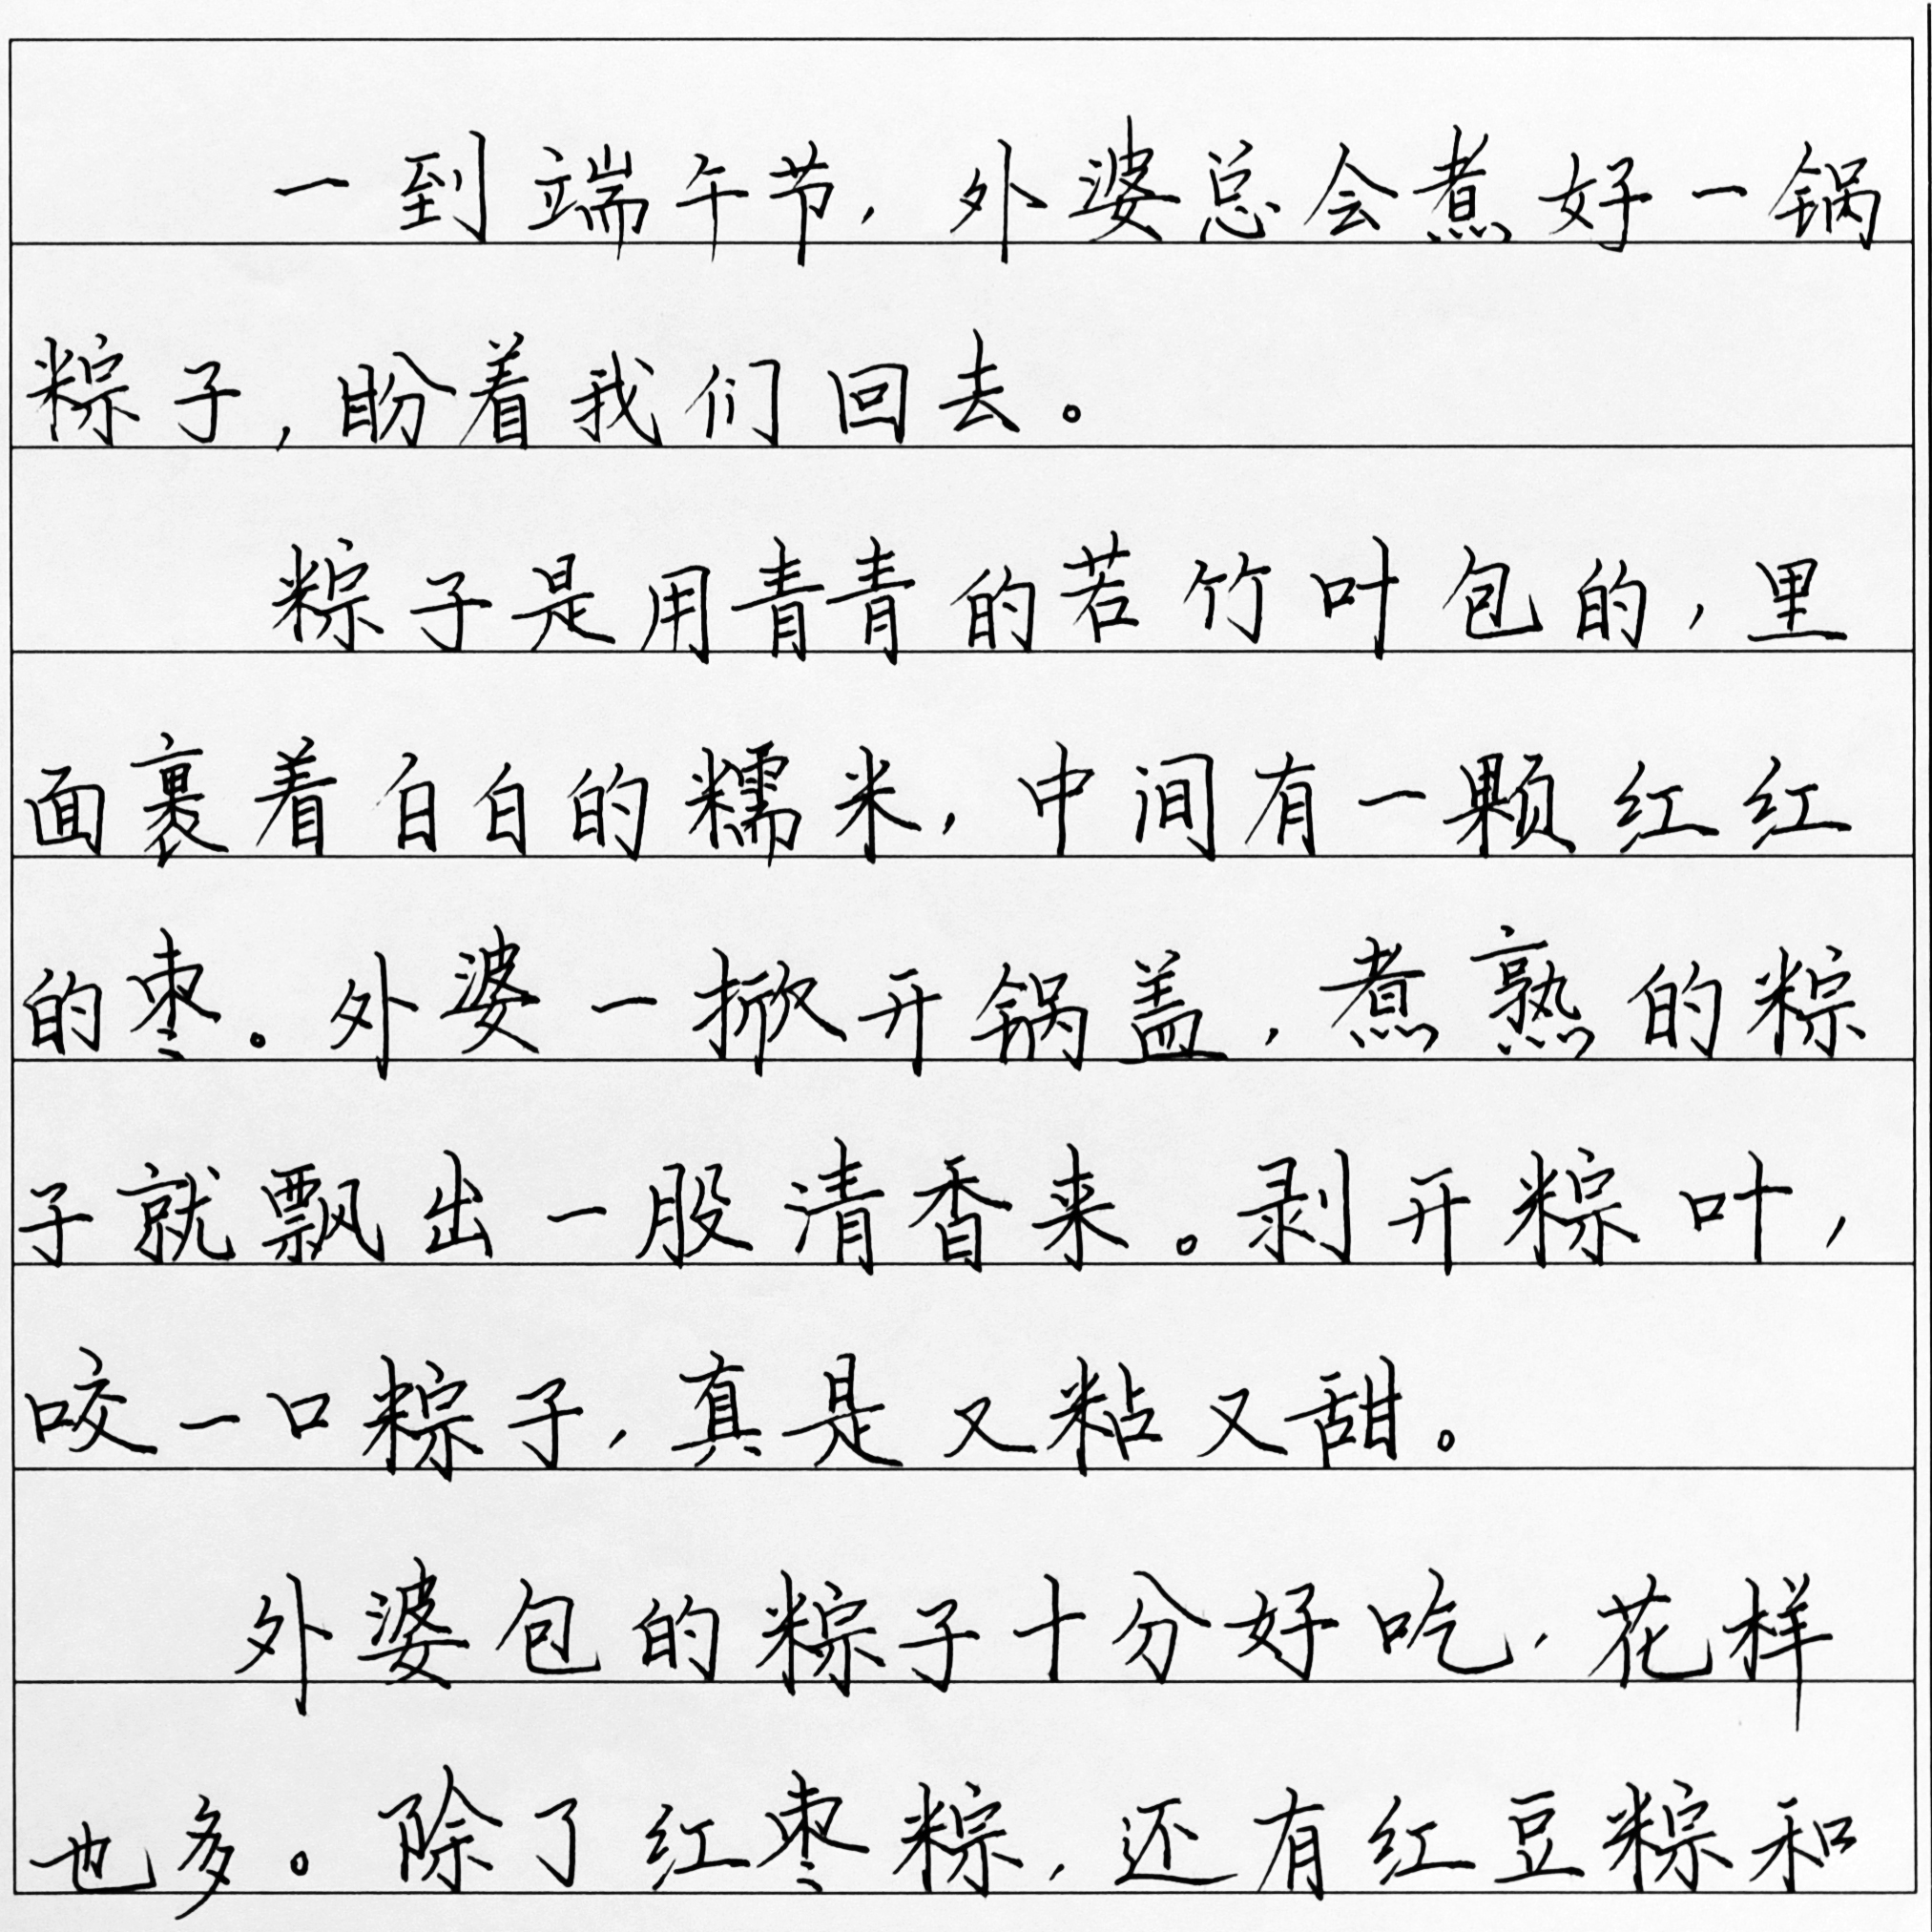 一到端午节，外婆总会煮好一锅
粽子，盼着我们回去。
粽子是用青青的若竹叶包的，里
面裹着白白的糯米，中间有一颗红红
的枣。外婆一掀开锅盖，煮熟的粽
子就飘出一股清香来。剥开粽叶，
咬一口粽子，真是又粘又甜。
外婆包的粽子十分好吃，花样
也多。除了红枣粽，还有红豆粽和